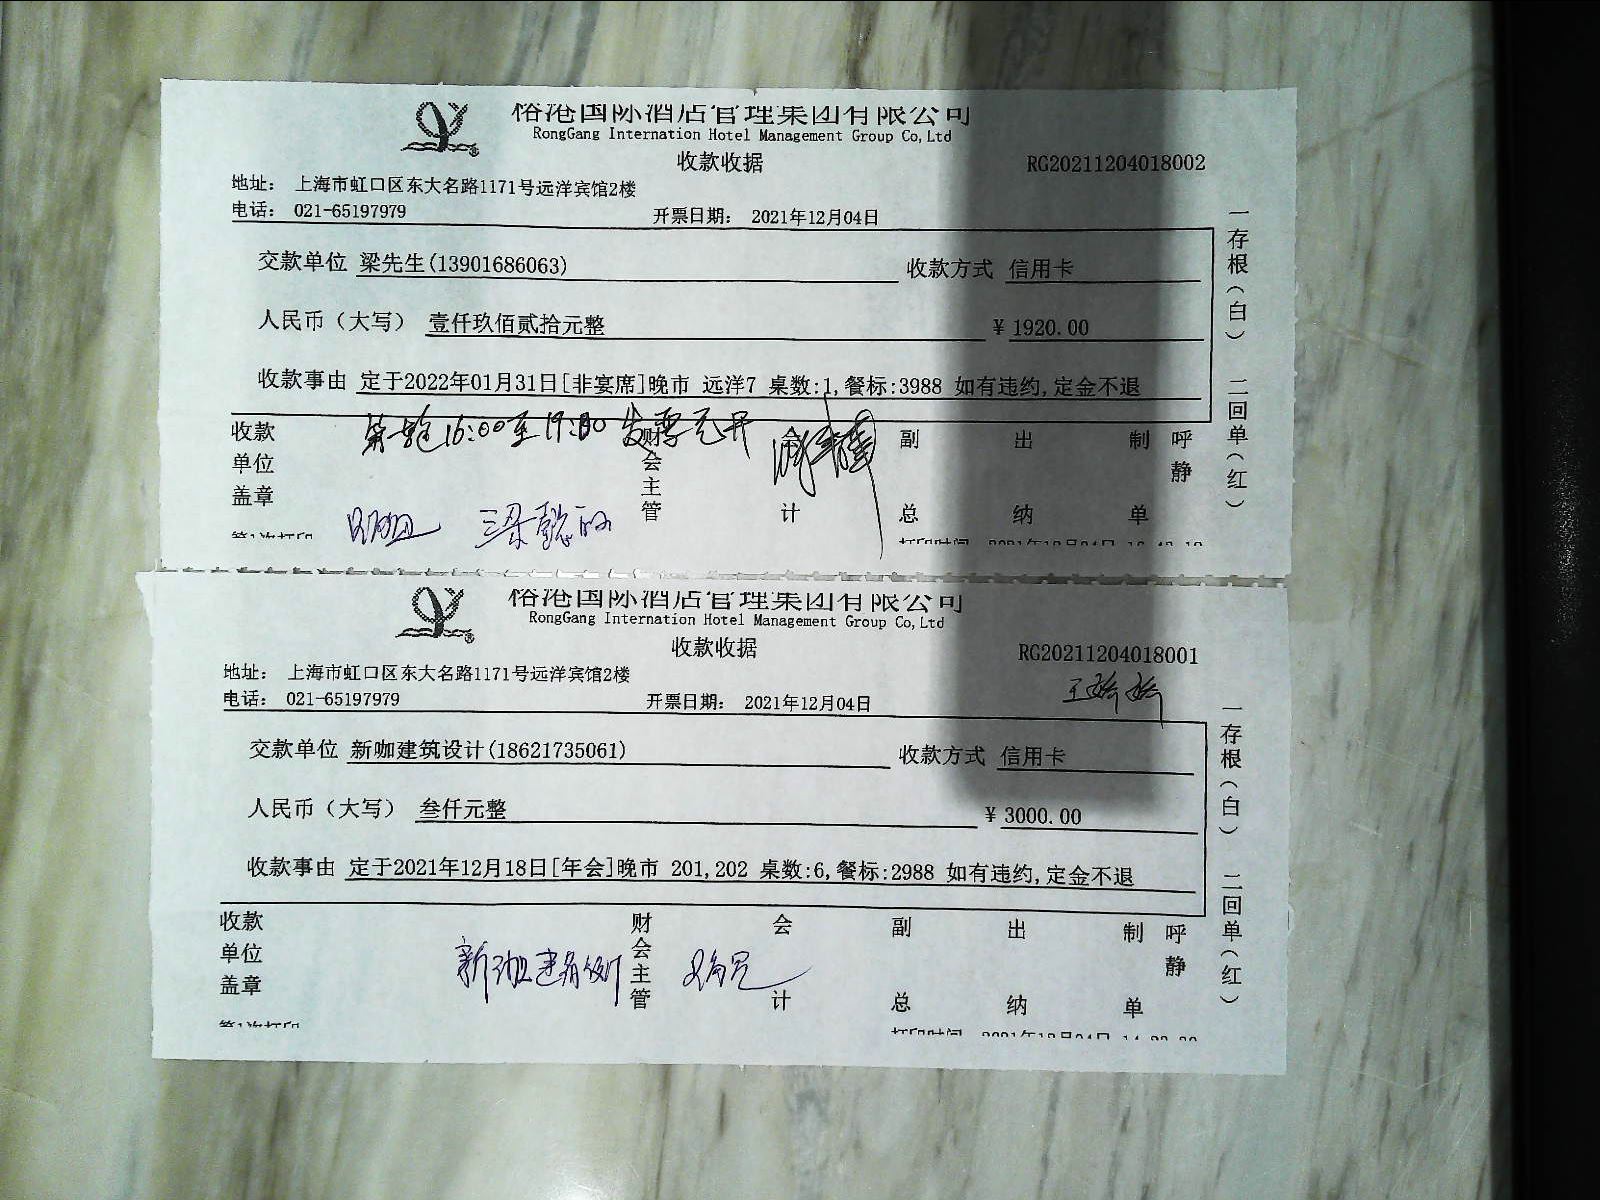 榕港国际酒店管理集团有限公司
RongGang Internation Hotel Management Group Co,Ltd
收款收据
RG20211204018002
地址： 上海市虹口区东大名路1171号远洋宾馆2楼
电话： 021-65197979 开票日期： 2021年12月04日
交款单位 梁先生(13901686063) 收款方式 信用卡
人民币（大写） 壹仟玖佰贰拾元整 ￥1920.00
收款事由 定于2022年01月31日[非宴席]晚市 远洋7 桌数:1,餐标:3988 如有违约,定金不退
16:00至19:00
收款单位盖章 财会主管 会计 副总 出纳 制单 呼静
第1次打印 打印时间 2021年12月04日
一存根（白） 二回单（红）
榕港国际酒店管理集团有限公司
RongGang Internation Hotel Management Group Co,Ltd
收款收据
RG20211204018001
地址： 上海市虹口区东大名路1171号远洋宾馆2楼
电话： 021-65197979 开票日期： 2021年12月04日
交款单位 新咖建筑设计(18621735061) 收款方式 信用卡
人民币（大写） 叁仟元整 ￥3000.00
收款事由 定于2021年12月18日[年会]晚市 201,202 桌数:6,餐标:2988 如有违约,定金不退
收款单位盖章 财会主管 会计 副总 出纳 制单 呼静
第1次打印 打印时间 2021年12月04日
一存根（白） 二回单（红）